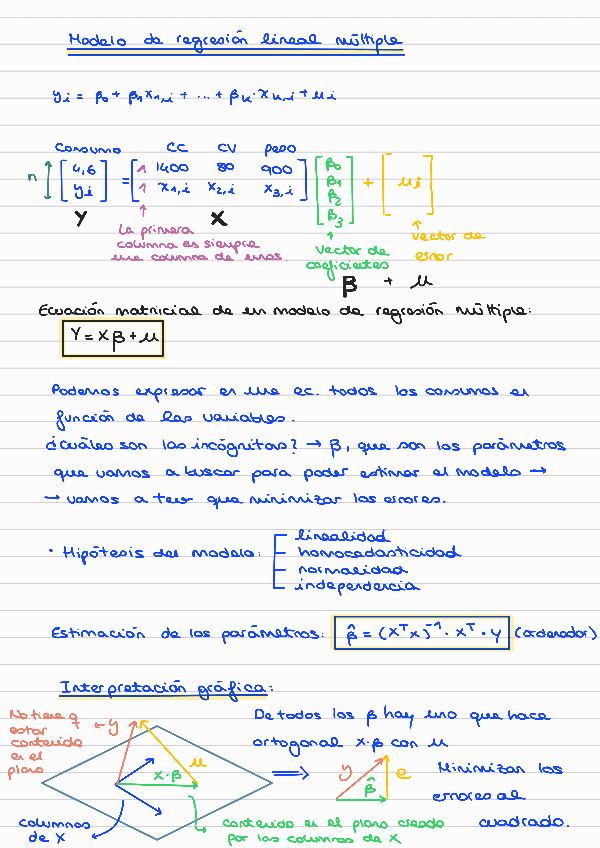 Modelo de regresión lineal múltiple
yi = β0 + β1x1,i + ... + βk·xk,i + μi
Consumo CC CV peso
n [4,6 yi] = [1 1400 80 900 1 x1,i x2,i x3,i] [β0 β1 β2 β3] + [μi]
Y X
La primera
columna es siempre
una columna de unos.
vector de
coeficientes
vector de
error
β + μ
Ecuación matricial de un modelo de regresión múltiple:
Y = Xβ + μ
Podemos expresar en una ec. todos los consumos en
función de las variables.
¿Cuáles son las incógnitas? → β, que son los parámetros
que vamos a buscar para poder estimar el modelo →
→ vamos a tener que minimizar los errores.
· Hipótesis del modelo:
linealidad
homocedasticidad
normalidad
independencia
Estimación de los parámetros: β̂ = (XᵀX)⁻¹ · Xᵀ · Y (ordenador)
Interpretación gráfica:
No tiene q
estar
contenido
en el
plano
← y
μ
X·β
columnas
de X
contenido en el plano creado
por las columnas de X
De todos los β hay uno que hace
ortogonal X·β con μ
⟹
y
β̂
e
Minimizar los
errores al
cuadrado.